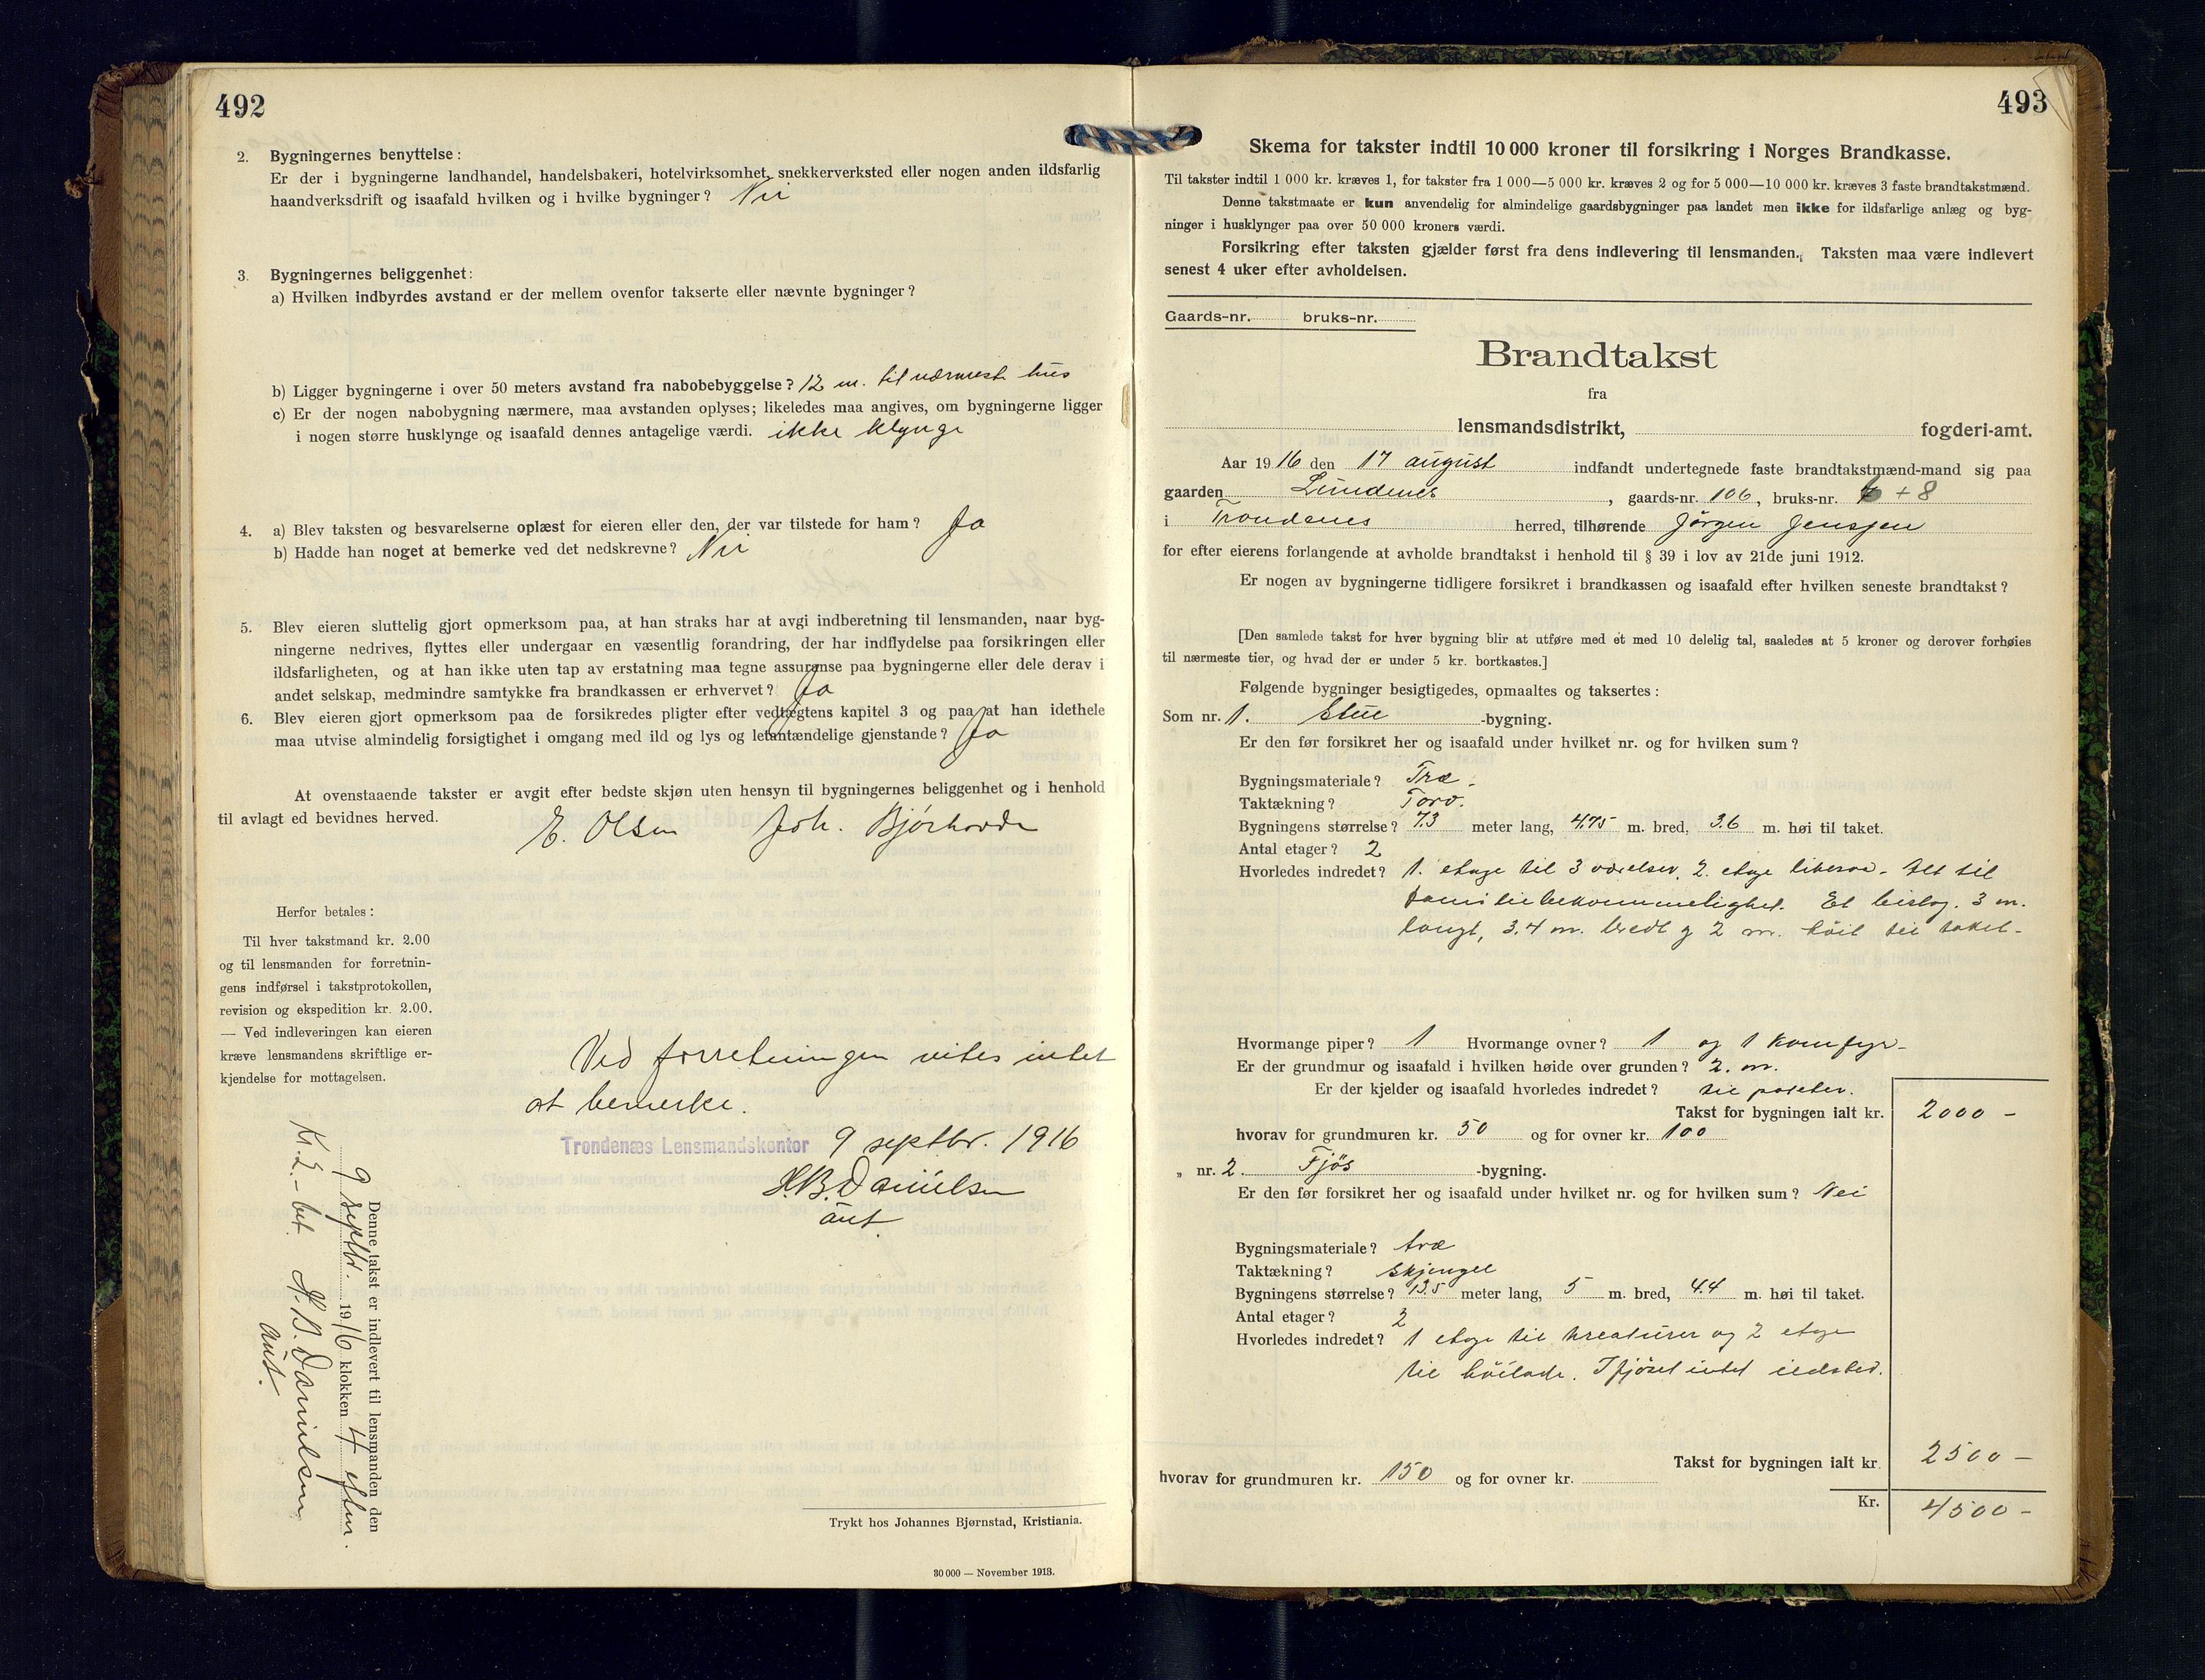 492
2. Bygningernes benyttelse:
Er der i bygningerne landhandel, handelsbakeri, hotelvirksomhet, snekkerverksted eller nogen anden ildsfarlig
haandverksdrift og isaafald hvilken og i hvilke bygninger? Nei
3. Bygningernes beliggenhet:
a) Hvilken indbyrdes avstand er der mellem ovenfor takserte eller nævnte bygninger?
b) Ligger bygningerne i over 50 meters avstand fra nabobebyggelse? 12 m. til nærmest hus
c) Er der nogen nabobygning nærmere, maa avstanden oplyses; likeledes maa angives, om bygningerne ligger
i nogen større husklynge og isaafald dennes antagelige værdi. ikke klynge
4. a) Blev taksten og besvarelserne oplæst for eieren eller den, der var tilstede for ham? Ja
b) Hadde han noget at bemerke ved det nedskrevne? Nei
5. Blev eieren sluttelig gjort opmerksom paa, at han straks har at avgi indberetning til lensmanden, naar byg-
ningerne nedrives, flyttes eller undergaar en væsentlig forandring, der har indflydelse paa forsikringen eller
ildsfarligheten, og at han ikke uten tap av erstatning maa tegne assuranse paa bygningerne eller dele derav i
andet selskap, medmindre samtykke fra brandkassen er erhvervet? Ja
6. Blev eieren gjort opmerksom paa de forsikredes pligter efter vedtægtens kapitel 3 og paa at han idethele
maa utvise almindelig forsigtighet i omgang med ild og lys og letantændelige gjenstande? Ja
At ovenstaaende takster er avgit efter bedste skjøn uten hensyn til bygningernes beliggenhet og i henhold
til avlagt ed bevidnes herved.
E. Olsen Joh. Bjórhovde
Herfor betales:
Til hver takstmand kr. 2.00
og til lensmanden for forretnin-
gens indførsel i takstprotokollen,
revision og ekspedition kr. 2.00.
— Ved indleveringen kan eieren
kræve lensmandens skriftlige er-
kjendelse for mottagelsen.
Ved forretningen vites intet
at bemerke.
Trondenæs Lensmandskontor 9 septbr. 1916
H.B. Danielsen
aut.
Denne takst er indlevert til lensmanden den
9 septbr. 1916 klokken 4 efterm.
Kr. 2.- bet. H. B. Danielsen
aut.
Trykt hos Johannes Bjørnstad, Kristiania.
30 000 — November 1913.
493
Skema for takster indtil 10 000 kroner til forsikring i Norges Brandkasse.
Til takster indtil 1 000 kr. kræves 1, for takster fra 1 000—5 000 kr. kræves 2 og for 5 000—10 000 kr. kræves 3 faste brandtakstmænd.
Denne takstmaate er kun anvendelig for almindelige gaardsbygninger paa landet men ikke for ildsfarlige anlæg og byg-
ninger i husklynger paa over 50 000 kroners værdi.
Forsikring efter taksten gjælder først fra dens indlevering til lensmanden. Taksten maa være indlevert
senest 4 uker efter avholdelsen.
Gaards-nr. bruks-nr.
Brandtakst
fra
lensmandsdistrikt, fogderi-amt.
Aar 1916 den 17 august indfandt undertegnede faste brandtakstmænd-mand sig paa
gaarden Lundenes, gaards-nr. 106, bruks-nr. + 8
i Trondenes herred, tilhørende Jörgen Jenssen
for efter eierens forlangende at avholde brandtakst i henhold til § 39 i lov av 21de juni 1912.
Er nogen av bygningerne tidligere forsikret i brandkassen og isaafald efter hvilken seneste brandtakst?
[Den samlede takst for hver bygning blir at utføre med et med 10 delelig tal, saaledes at 5 kroner og derover forhøies
til nærmeste tier, og hvad der er under 5 kr. bortkastes.]
Følgende bygninger besigtigedes, opmaaltes og taksertes:
Som nr. 1. Stue -bygning.
Er den før forsikret her og isaafald under hvilket nr. og for hvilken sum?
Bygningsmateriale? Træ.
Taktækning? Torv.
Bygningens størrelse? 7.3 meter lang, 4.75 m. bred, 3.6 m. høi til taket.
Antal etager? 2
Hvorledes indredet? 1. etage til 3 værelser, 2. etage likesaa. Alt til
familiebekvemmelighet. Et bislag. 3 m.
langt, 3.4 m. bredt og 2 m. höit til taket.
Hvormange piper? 1 Hvormange ovner? 1 og 1 komfyr.
Er der grundmur og isaafald i hvilken høide over grunden? 2. m.
Er der kjelder og isaafald hvorledes indredet? til poteter.
Takst for bygningen ialt kr. 2000 -
hvorav for grundmuren kr. 50 og for ovner kr. 100
„ nr. 2. Fjös -bygning.
Er den før forsikret her og isaafald under hvilket nr. og for hvilken sum? Nei
Bygningsmateriale? træ
Taktækning? Skjengel
Bygningens størrelse? 13.5 meter lang, 5 m. bred, 4.4 m. høi til taket.
Antal etager? 2
Hvorledes indredet? 1 etage til kreaturer og 2 etage
til höilade. I fjöset intet ildsted.
Takst for bygningen ialt kr. 2500 —
hvorav for grundmuren kr. 150 og for ovner kr.
Kr. 4500 -